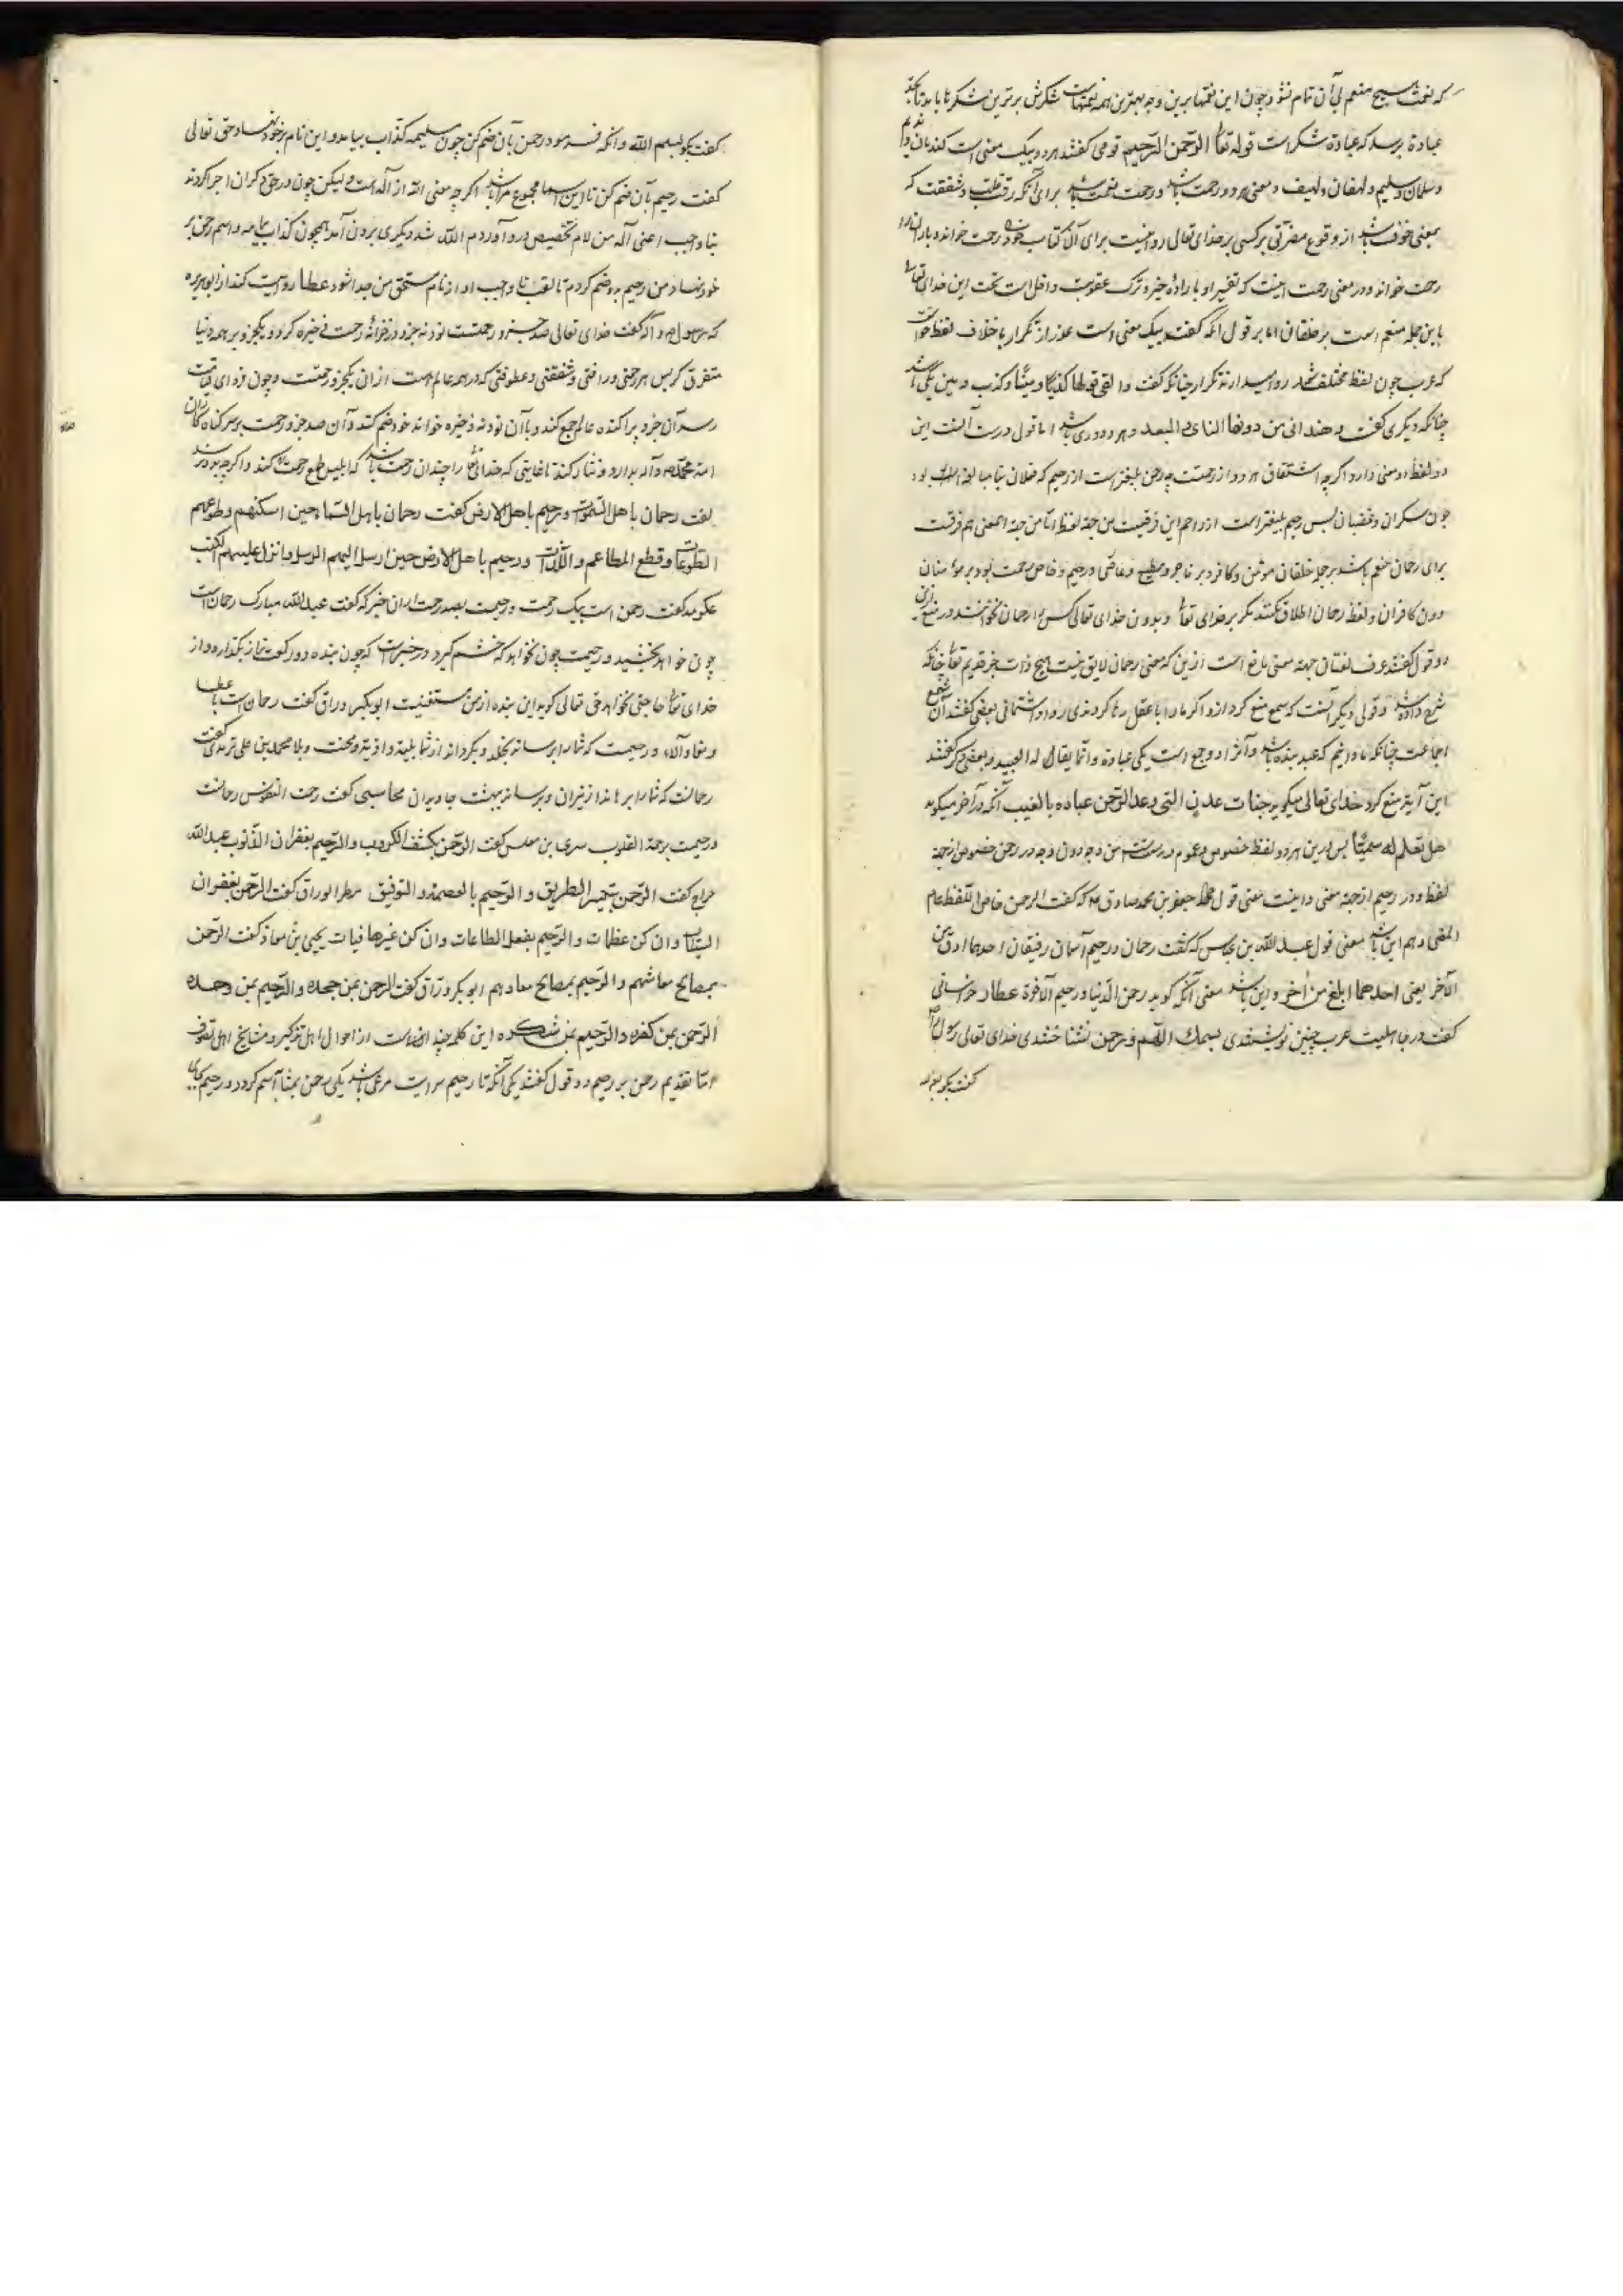 که نعمت هیچ منعم بی آن تمام نشود چون این نعمتها برین وجه بهترین همه نعمتهاست شکرش برترین شکرها باید تا بحد
عبادة برسد که عبادة شکر است قوله تعالی الرحمن الرحیم قومی گفتند هر دو بیک معنی است کندمان وندیم
وسلمان وسلیم ولهفان ولهیف ومعنی هر دو رحمت باشد ورحمت نعمت باشد برای آنکه رقت قلب وشفقت که
بمعنی خوف باشد از وقوع مضرتی برکسی برخدای تعالی روا نیست برای آن کتاب خود را رحمت خواند وباران را
رحمت خواند ودر معنی رحمت اینست که تفسیر او بارادۀ خیر وترک عقوبت داخل است تحت این خدای تعالی
باین جمله منعم است بر خلقان اما بر قول آنکه گفت بیک معنی است عذر از تکرار با خلاف لفظ خواست
که عرب چون لفظ مختلف شد روا میدارند تکرار چنانکه گفت والفی قولها کذبا ومینا وکذب ومین یکی باشد
چنانکه دیگری گفت وهند اتی من دونها النای والبعد وهر دو دوری باشد اما قول درست آنست این
دو لفظ دو معنی دارد اگرچه اشتقاق هر دو از رحمتست چه رحمن بلیغتر است از رحیم که فعلان بنا مبالغه را بود
چون سکران وغضبان پس رحیم بلیغتر است از راحم این فرقیست من جهة لفظ اما من جهة المعنی هم فرقست
برای رحمان منعم باشد بر جمله خلقان مومن وکافر وبر وفاجر ومطیع وعاصی ورحیم وخاص رحمت بود بر مومنان
دون کافران ولفظ رحمان اطلاق نکنند مگر بر خدای تعالی وبدون خدای تعالی کسی را رحمان نخوانند ودر منع ازین
دو قول گفتند عرف لغتان جهته معنی مانع است ازین که معنی رحمان لایق نیست بهیچ ذات جز قدیم تعالی چنانکه
شرح داده شد وقولی دیگر آنست که سمع منع کرد ازو اگر ما را با عقل رها کردندی روا داشتمانی بعضی گفتند آن سمع
اجماعست چنانکه ما دانیم که عبد بنده باشد وآنرا دو جمع است یکی عباده وانما یقال له العبید وبعضی دگر گفتند
این آیة منع کرد خدای تعالی میگوید جنات عدن التی وعد الرحمن عباده بالغیب آنکه در آخر میگوید
هل تعلم له سمیا پس درین هر دو لفظ خصوص وعموم درست است من وجه دون وجه در رحمن خصوص از جهة
لفظ ودر رحیم از جهة معنی واینست معنی قول جعفر بن محمد صادق ع که گفت الرحمن خاص اللفظ عام
المعنی وهم این باشد معنی قول عبدالله بن عباس که گفت رحمان ورحیم اسمان رفیقان احدهما ارق من
الآخر یعنی احدهما ابلغ من اخر واین باشد معنی آنکه گوید رحمن الدنیا ورحیم الآخرة عطار خراسانی
گفت در جاهلیت عرب چنین نوشتندی بسمک اللهم ورحمن نشناختندی خدای تعالی رسول را
گفت بگو بسم
گفت بگو بسم الله وآنکه فرمود رحمن بآن ضم کن چون مسیلمه کذاب بیامد واین نام بر خود نهاد حق تعالی
گفت رحیم بآن ضم کن تا این اسما مجموع مرا باشد اگرچه معنی الله از اله است ولیکن چون در حق دگران اجرا کردند
بنا واجب اعنی اله من لام تخصیص درو آوردم الله شد دیگری برون آمد همچون کذاب یمامه واسم رحمن بر
خود نهاد من رحیم بدو ضم کردم تا لقب نا واجب او از نام مستحق من جدا شود عطا روایت کند از ابوهریره
که رسول ص وآله گفت خدای تعالی صد جزو رحمتست نود نه جزو در خزانۀ رحمت ذخیره کرد ویکجزو بر همه دنیا
متفرق کرد پس هر رحمتی ورافتی وشفقتی وعطوفتی که در همه عالم است از آن یکجزو رحمتست وچون فردای قیامت
رسد آن جزو پراکنده عالم جمع کند وبا آن نود نه ذخیره خوانه خود ضم کند وآن صد جزو رحمت بر سر گناه کاران
امة محمد ص وآله بدارد ونثار کند تا غایتی که خدای تعالی را چندان رحمت باشد که ابلیس طمع رحمت کند
گفت رحمان باهل السموات ورحیم باهل الارض گفت رحمان باهل السماء حین اسکنهم وطوعهم
الطوعات وقطع المطاعم واللذات ورحیم باهل الارض حین ارسل الیهم الرسل وانزل علیهم الکتب
عکرمه گفت رحمن است بیک رحمت ورحیمست بصد رحمت گفت عبدالله مبارک رحمان است
چون خواهند بخشید ورحیمست چون نخواهد که خشم گیرد ودر خبر است که چون بنده دو رکعت نماز بگذارد واز
خدای تعالی حاجتی نخواهد حق تعالی گوید این بنده از من مستغنیست ابوبکر وراق گفت رحمان است با عطا
ونعما وآلاء ورحیمست که شما را محمد بن علی ترمدی گفت
رحمانست که شما را برهاند از نیران وبرساند ببهشت جاویدان محاسبی گفت رحمت النفوس رحمانست
ورحیمست برحمة القلوب سری بن مغلس گفت الرحمن بکشف الکروب والرحیم بغفران الذنوب عبدالله
جراح گفت الرحمن بتیسیر الطریق والرحیم بالعصمة والتوفیق مطر الوراق گفت الرحمن بغفران
السیئات وان کن عظمات والرحیم بفعل الطاعات وان کن غیر صافیات یحیی بن معاذ گفت الرحمن
بمصالح معاشهم والرحیم بمصالح معادهم ابوبکر وراق گفت الرحمن بمن جحده والرحیم بمن وحده
الرحمن بمن کفره والرحیم بمن شکره این کلمه چند از اقوال اهل تذکیر ومشایخ اهل تصوف
اما تقدیم رحمن بر رحیم دو قول گفتند یکی آنکه تا رحیم یکی رحمن بمثابۀ اسم کرد ورحیم